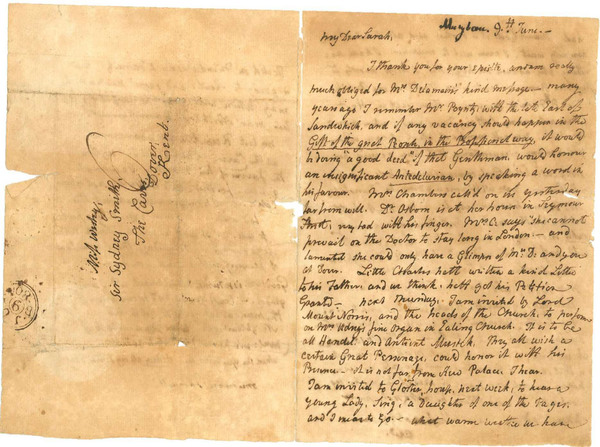 Miss Udney,
Sir Sydney Smith,
The Castle
Dover,
Kent.
9th June.
My Dear Sarah,
I thank you for your epistle, and am really
much obliged for Mrs Delamain's kind message – many
years ago I remember Mr Poyntz, with the late Earl of
Sandwich, and if any vacancy should happen in the
Gift of the great People, in the Professional way, it would
be doing a good deed, if that Gentleman would honour
an insignificant Antediluvian, by speaking a word in
his favour. Mrs Chambers call'd on us yesterday
far from well. Dr Osborn is at her house in Seymour
Street, very bad with his finger. Mrs O. says she cannot
prevail on the Doctor to stay long in London – and
lamented she could only have a Glimpse of Mrs D: and you
at Dover. Little Charles hath written a kind Letter
to his Father, and we think, hath got his Petition
Granted – next Thursday. I am invited by Lord
Mount Norris, and the heads of the Church, to perform
on Mrs Udny's fine organ in Ealing Church. It is to be
all Handel, and Antient Musick. They all wish a
certain Great Personage, could honor it with his
Presence – it is not far from Kew Palace, I hear.
I am invited to Glo'ster house, next week, to hear a
young Lady, Sing, a Daughter of one of the Pages
and I mean to go. – what warm weather we have